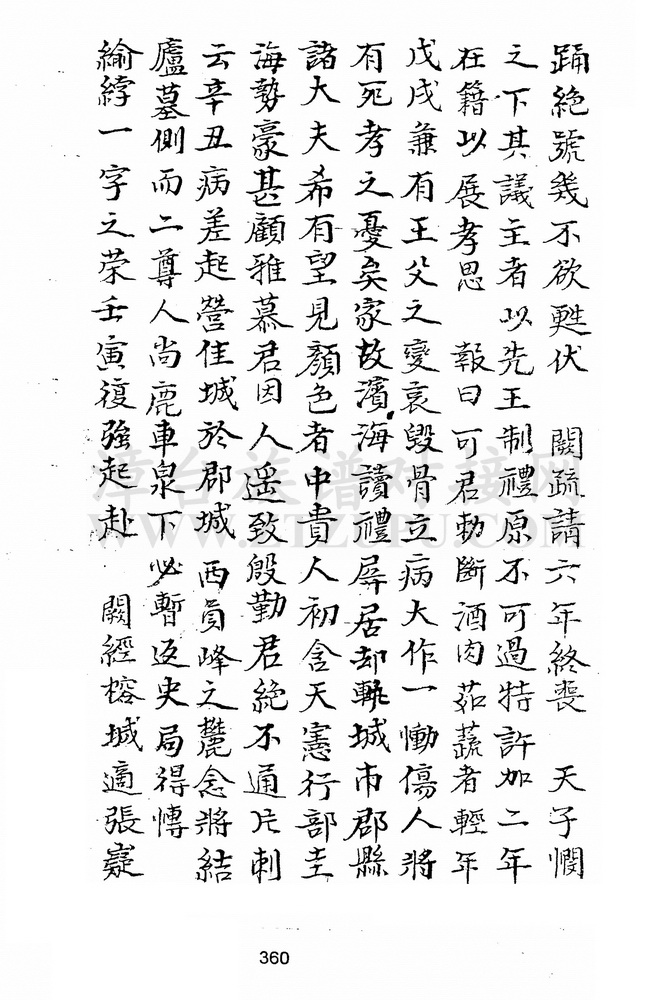 踊絕號幾不欲甦伏　闕疏請六年終喪　天子憫
之下其議主者以先王制禮原不可過特許加二年
在籍以展孝思　報曰可君勅斷酒肉茹蔬者輕年
戊戌兼有王父之變哀毀骨立病大作一慟傷人將
有死孝之憂矣家故濱海讀禮屏居却軌城市郡縣
諸大夫希有望見顏色者中貴人初含天憲行部至
海勢豪甚顧雅慕君因人遥致殷勤君絕不通片刺
云辛丑病差起營佳城於郡城西員峰之麓念將結
廬墓側而二尊人尚鹿車泉下必暫返史局得愽
綸綍一字之荣壬寅復強起赴　闕經榕城適張嶷
漳台族谱对接网
WWW.ZTZUPU.COM
360